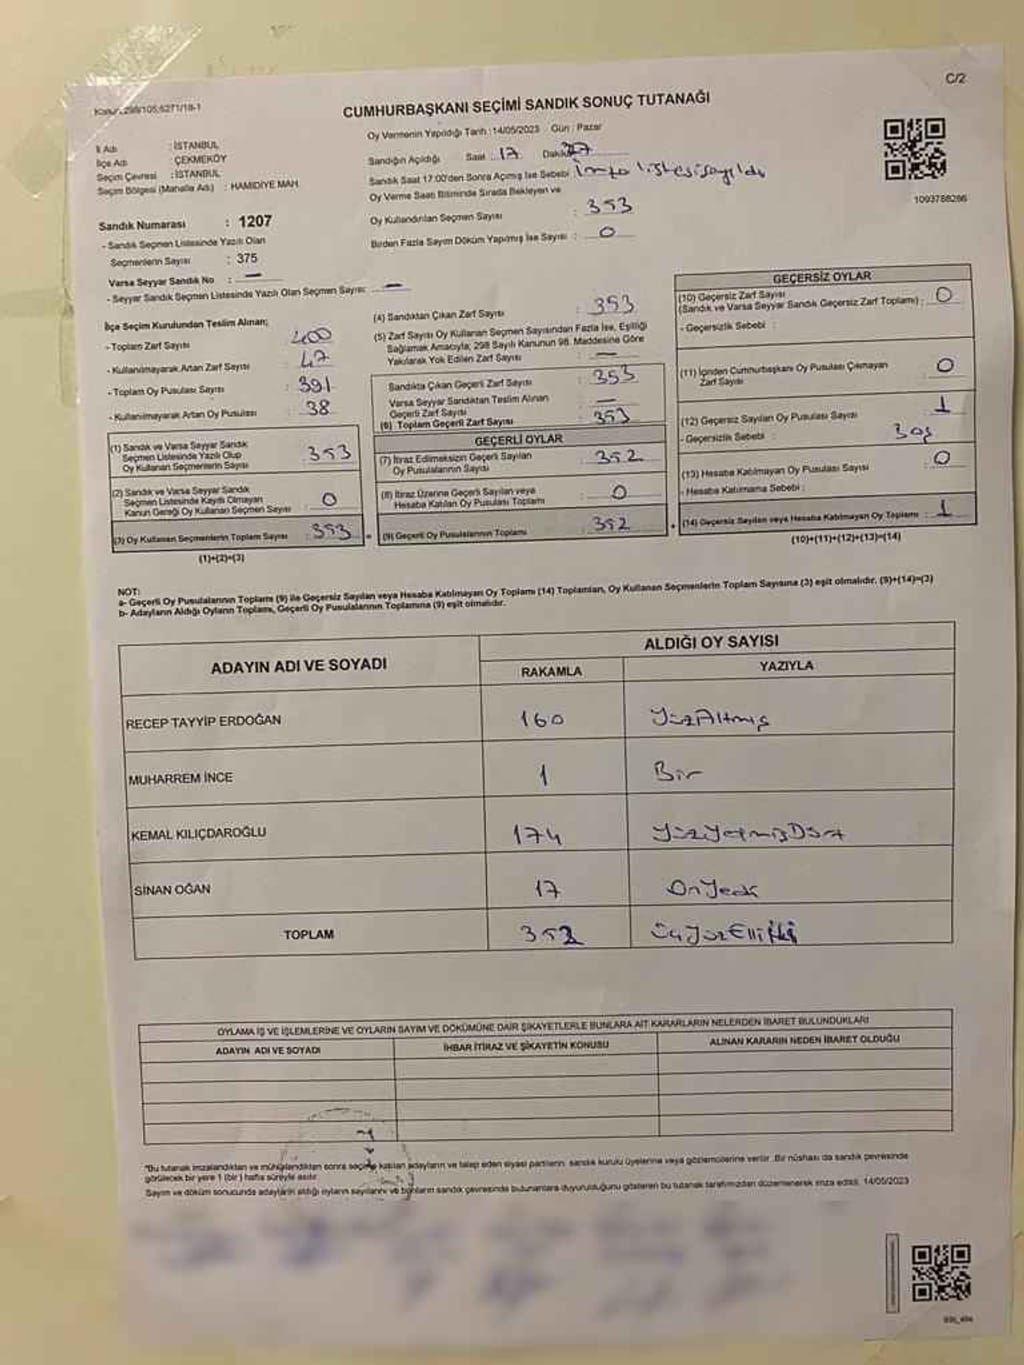 C/2
Kanun 298/105,6271/18-1
CUMHURBAŞKANI SEÇİMİ SANDIK SONUÇ TUTANAĞI
İl Adı : İSTANBUL
İlçe Adı : ÇEKMEKÖY
Seçim Çevresi : İSTANBUL
Seçim Bölgesi (Mahalle Adı) : HAMİDİYE MAH.
Oy Vermenin Yapıldığı Tarih :14/05/2023 Gün : Pazar
Sandığın Açıldığı Saat : 17 Dakika
Sandık Saat 17:00'den Sonra Açımış İse Sebebi : İmza listesi sayıldı
Oy Verme Saati Bitiminde Sırada Bekleyen ve
Oy Kullandırılan Seçmen Sayısı : 353
Birden Fazla Sayım Döküm Yapılmış İse Sayısı : 0
1093788286
Sandık Numarası : 1207
- Sandık Seçmen Listesinde Yazılı Olan
Seçmenlerin Sayısı : 375
Varsa Seyyar Sandık No : —
- Seyyar Sandık Seçmen Listesinde Yazılı Olan Seçmen Sayısı : —
İlçe Seçim Kurulundan Teslim Alınan;
- Toplam Zarf Sayısı : 400
- Kullanılmayarak Artan Zarf Sayısı : 47
- Toplam Oy Pusulası Sayısı : 391
- Kullanılmayarak Artan Oy Pusulası : 38
(1) Sandık ve Varsa Seyyar Sandık
Seçmen Listesinde Yazılı Olup
Oy Kullanan Seçmenlerin Sayısı : 353
(2) Sandık ve Varsa Seyyar Sandık
Seçmen Listesinde Kayıtlı Olmayan
Kanun Gereği Oy Kullanan Seçmen Sayısı : 0
(3) Oy Kullanan Seçmenlerin Toplam Sayısı : 353
(1)+(2)=(3)
(4) Sandıktan Çıkan Zarf Sayısı : 353
(5) Zarf Sayısı Oy Kullanan Seçmen Sayısından Fazla İse, Eşitliği
Sağlamak Amacıyla; 298 Sayılı Kanunun 98. Maddesine Göre
Yakılarak Yok Edilen Zarf Sayısı : —
Sandıkta Çıkan Geçerli Zarf Sayısı : 353
Varsa Seyyar Sandıktan Teslim Alınan
Geçerli Zarf Sayısı : —
(6) Toplam Geçerli Zarf Sayısı : 353
GEÇERLİ OYLAR
(7) İtiraz Edilmeksizin Geçerli Sayılan
Oy Pusulalarının Sayısı : 352
(8) İtiraz Üzerine Geçerli Sayılan veya
Hesaba Katılan Oy Pusulası Toplamı : 0
(9) Geçerli Oy Pusulalarının Toplamı : 352
GEÇERSİZ OYLAR
(10) Geçersiz Zarf Sayısı
(Sandık ve Varsa Seyyar Sandık Geçersiz Zarf Toplamı) : 0
- Geçersizlik Sebebi :
(11) İçinden Cumhurbaşkanı Oy Pusulası Çıkmayan
Zarf Sayısı : 0
(12) Geçersiz Sayılan Oy Pusulası Sayısı : 1
- Geçersizlik Sebebi : Boş
(13) Hesaba Katılmayan Oy Pusulası Sayısı : 0
- Hesaba Katılmama Sebebi :
(14) Geçersiz Sayılan veya Hesaba Katılmayan Oy Toplamı : 1
(10)+(11)+(12)+(13)=(14)
NOT:
a- Geçerli Oy Pusulalarının Toplamı (9) ile Geçersiz Sayılan veya Hesaba Katılmayan Oy Toplamı (14) Toplamları, Oy Kullanan Seçmenlerin Toplam Sayısına (3) eşit olmalıdır. (9)+(14)=(3)
b- Adayların Aldığı Oyların Toplamı, Geçerli Oy Pusulalarının Toplamına (9) eşit olmalıdır.
ADAYIN ADI VE SOYADI
ALDIĞI OY SAYISI
RAKAMLA YAZIYLA
RECEP TAYYİP ERDOĞAN 160 YüzAltmış
MUHARREM İNCE 1 Bir
KEMAL KILIÇDAROĞLU 174 YüzYetmişDört
SİNAN OĞAN 17 OnYedi
TOPLAM 352 ÜçYüzElliİki
OYLAMA İŞ VE İŞLEMLERİNE VE OYLARIN SAYIM VE DÖKÜMÜNE DAİR ŞİKAYETLERLE BUNLARA AİT KARARLARIN NELERDEN İBARET BULUNDUKLARI
ADAYIN ADI VE SOYADI İHBAR İTİRAZ VE ŞİKAYETİN KONUSU ALINAN KARARIN NEDEN İBARET OLDUĞU
*Bu tutanak imzalandıktan ve mühürlendikten sonra seçime katılan adayların ve talep eden siyasi partilerin sandık kurulu üyelerine veya gözlemcilerine verilir. Bir nüshası da sandık çevresinde
görülecek bir yere 1 (bir) hafta süreyle asılır.
Sayım ve döküm sonucunda adayların aldığı oyların sayılarını ve bunların sandık çevresinde bulunanlara duyurulduğunu gösteren bu tutanak tarafımızdan düzenlenerek imza edildi. 14/05/2023